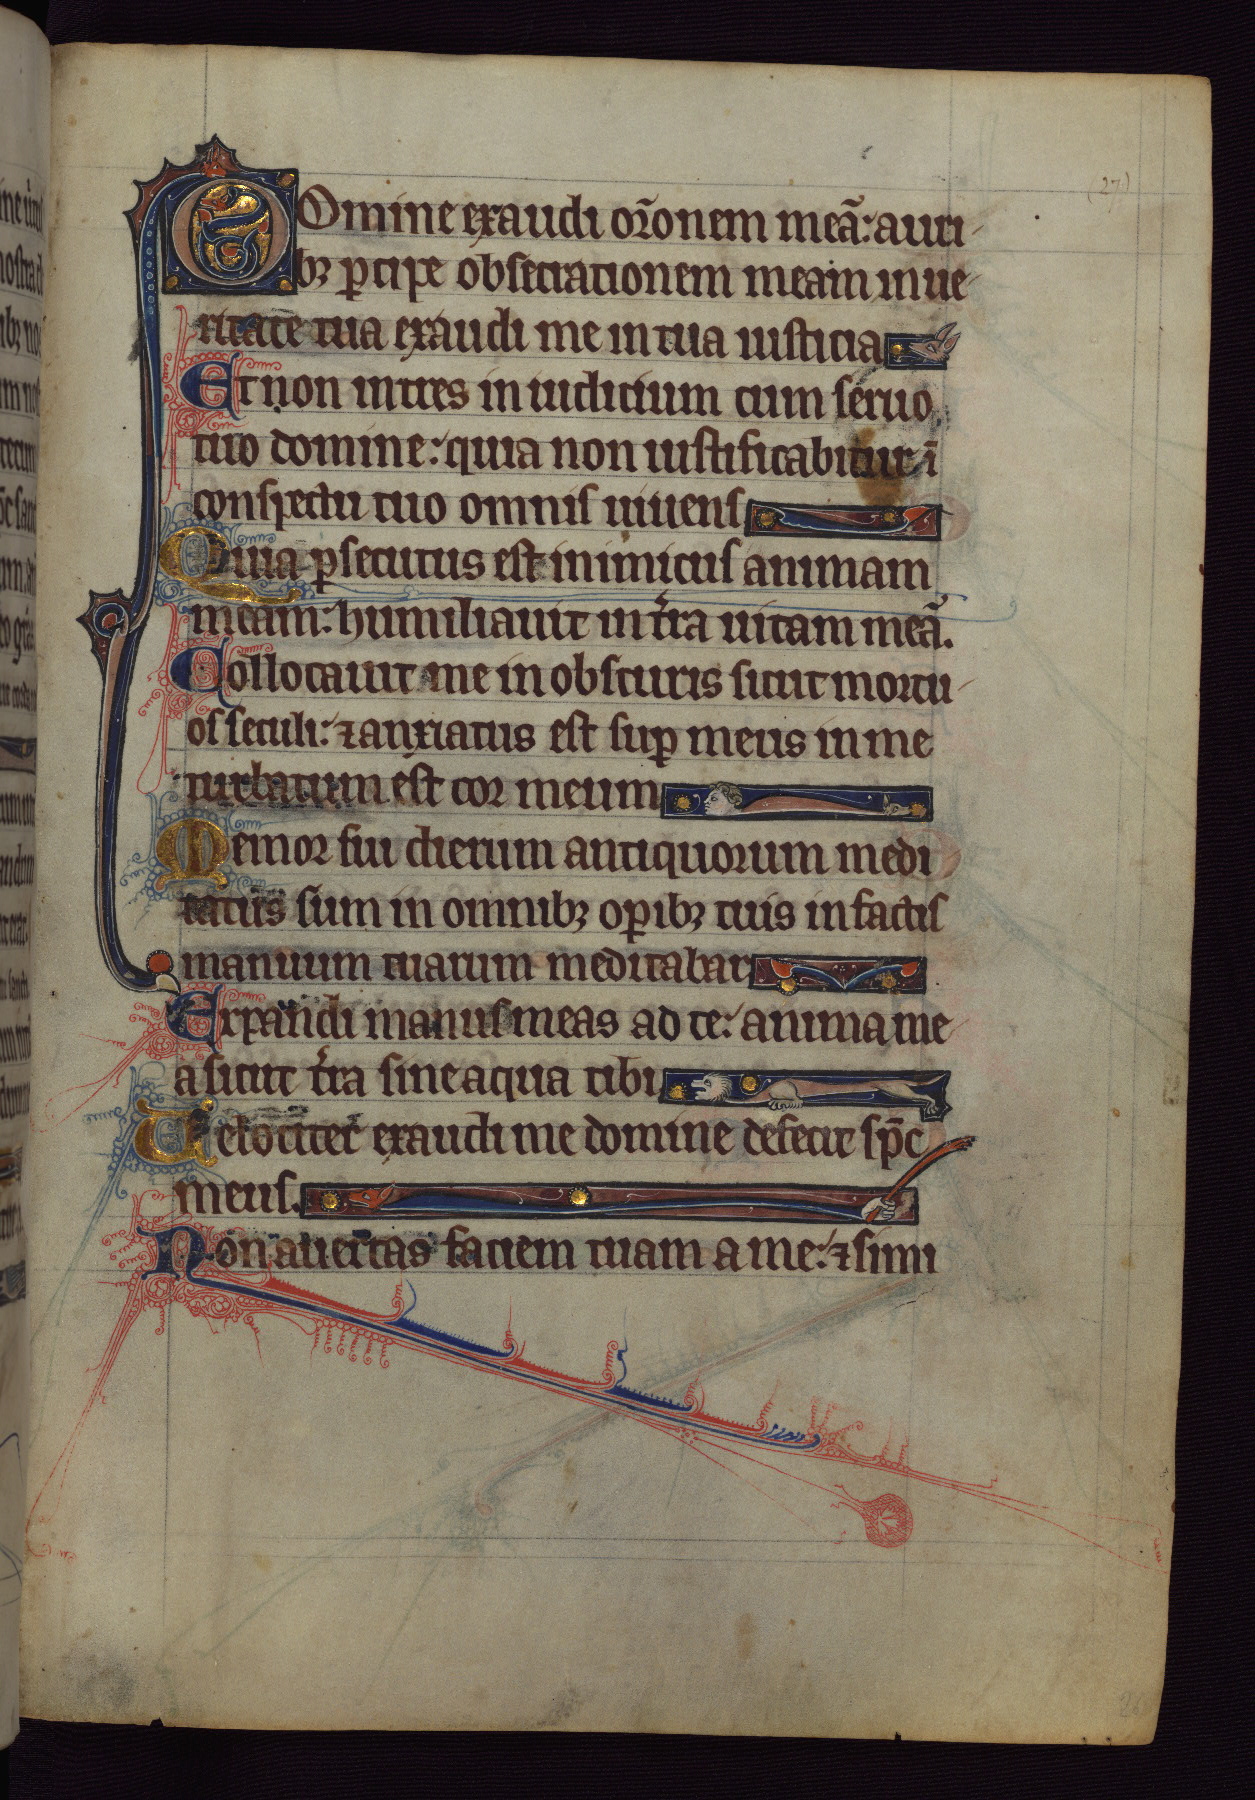 (27)
Domine exaudi or̄onem meā: auri-
bꝫ ꝑcipe obsecrationem meam in ue-
ritate tua exaudi me in tua iusticia
Et non intres in iudicium cum seruo
tuo domine: quia non iustificabitur ī
conspectu tuo omnis uiuens
Quia ꝑsecutus est inimicus animam
meam: humiliauit in t̄ra uitam meā.
Collocauit me in obscuris sicut mortu-
os seculi: ⁊ anxiatus est suꝑ me sp̄s in me
turbatum est cor meum
Memor fui dierum antiquorum medi
tatus sum in omnibꝫ oꝑibꝫ tuis in factis
manuum tuarum meditabar
Expandi manus meas ad te: anima me-
a sicut t̄ra sine aqua tibi
Velociter exaudi me domine defecit sp̄c
meus.
Non auertas faciem tuam a me: ⁊ simi